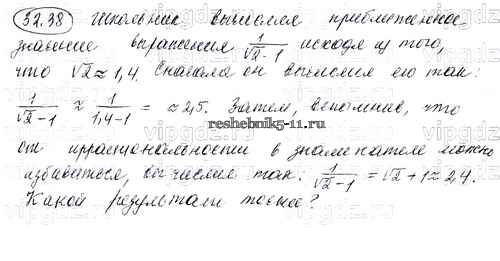 32.38 Школьник вычислял приближенное
значение выражения 1/(√2-1) исходя из того,
что √2≈1,4. Сначала он вычислил его так:
1/(√2-1) ≈ 1/(1,4-1) = ≈2,5. Затем, вспомнив, что
reshebnik5-11.ru
от иррациональности в знаменателе можно
избавиться, вычислил так: 1/(√2-1) = √2+1≈2,4.
Какой результат точнее?